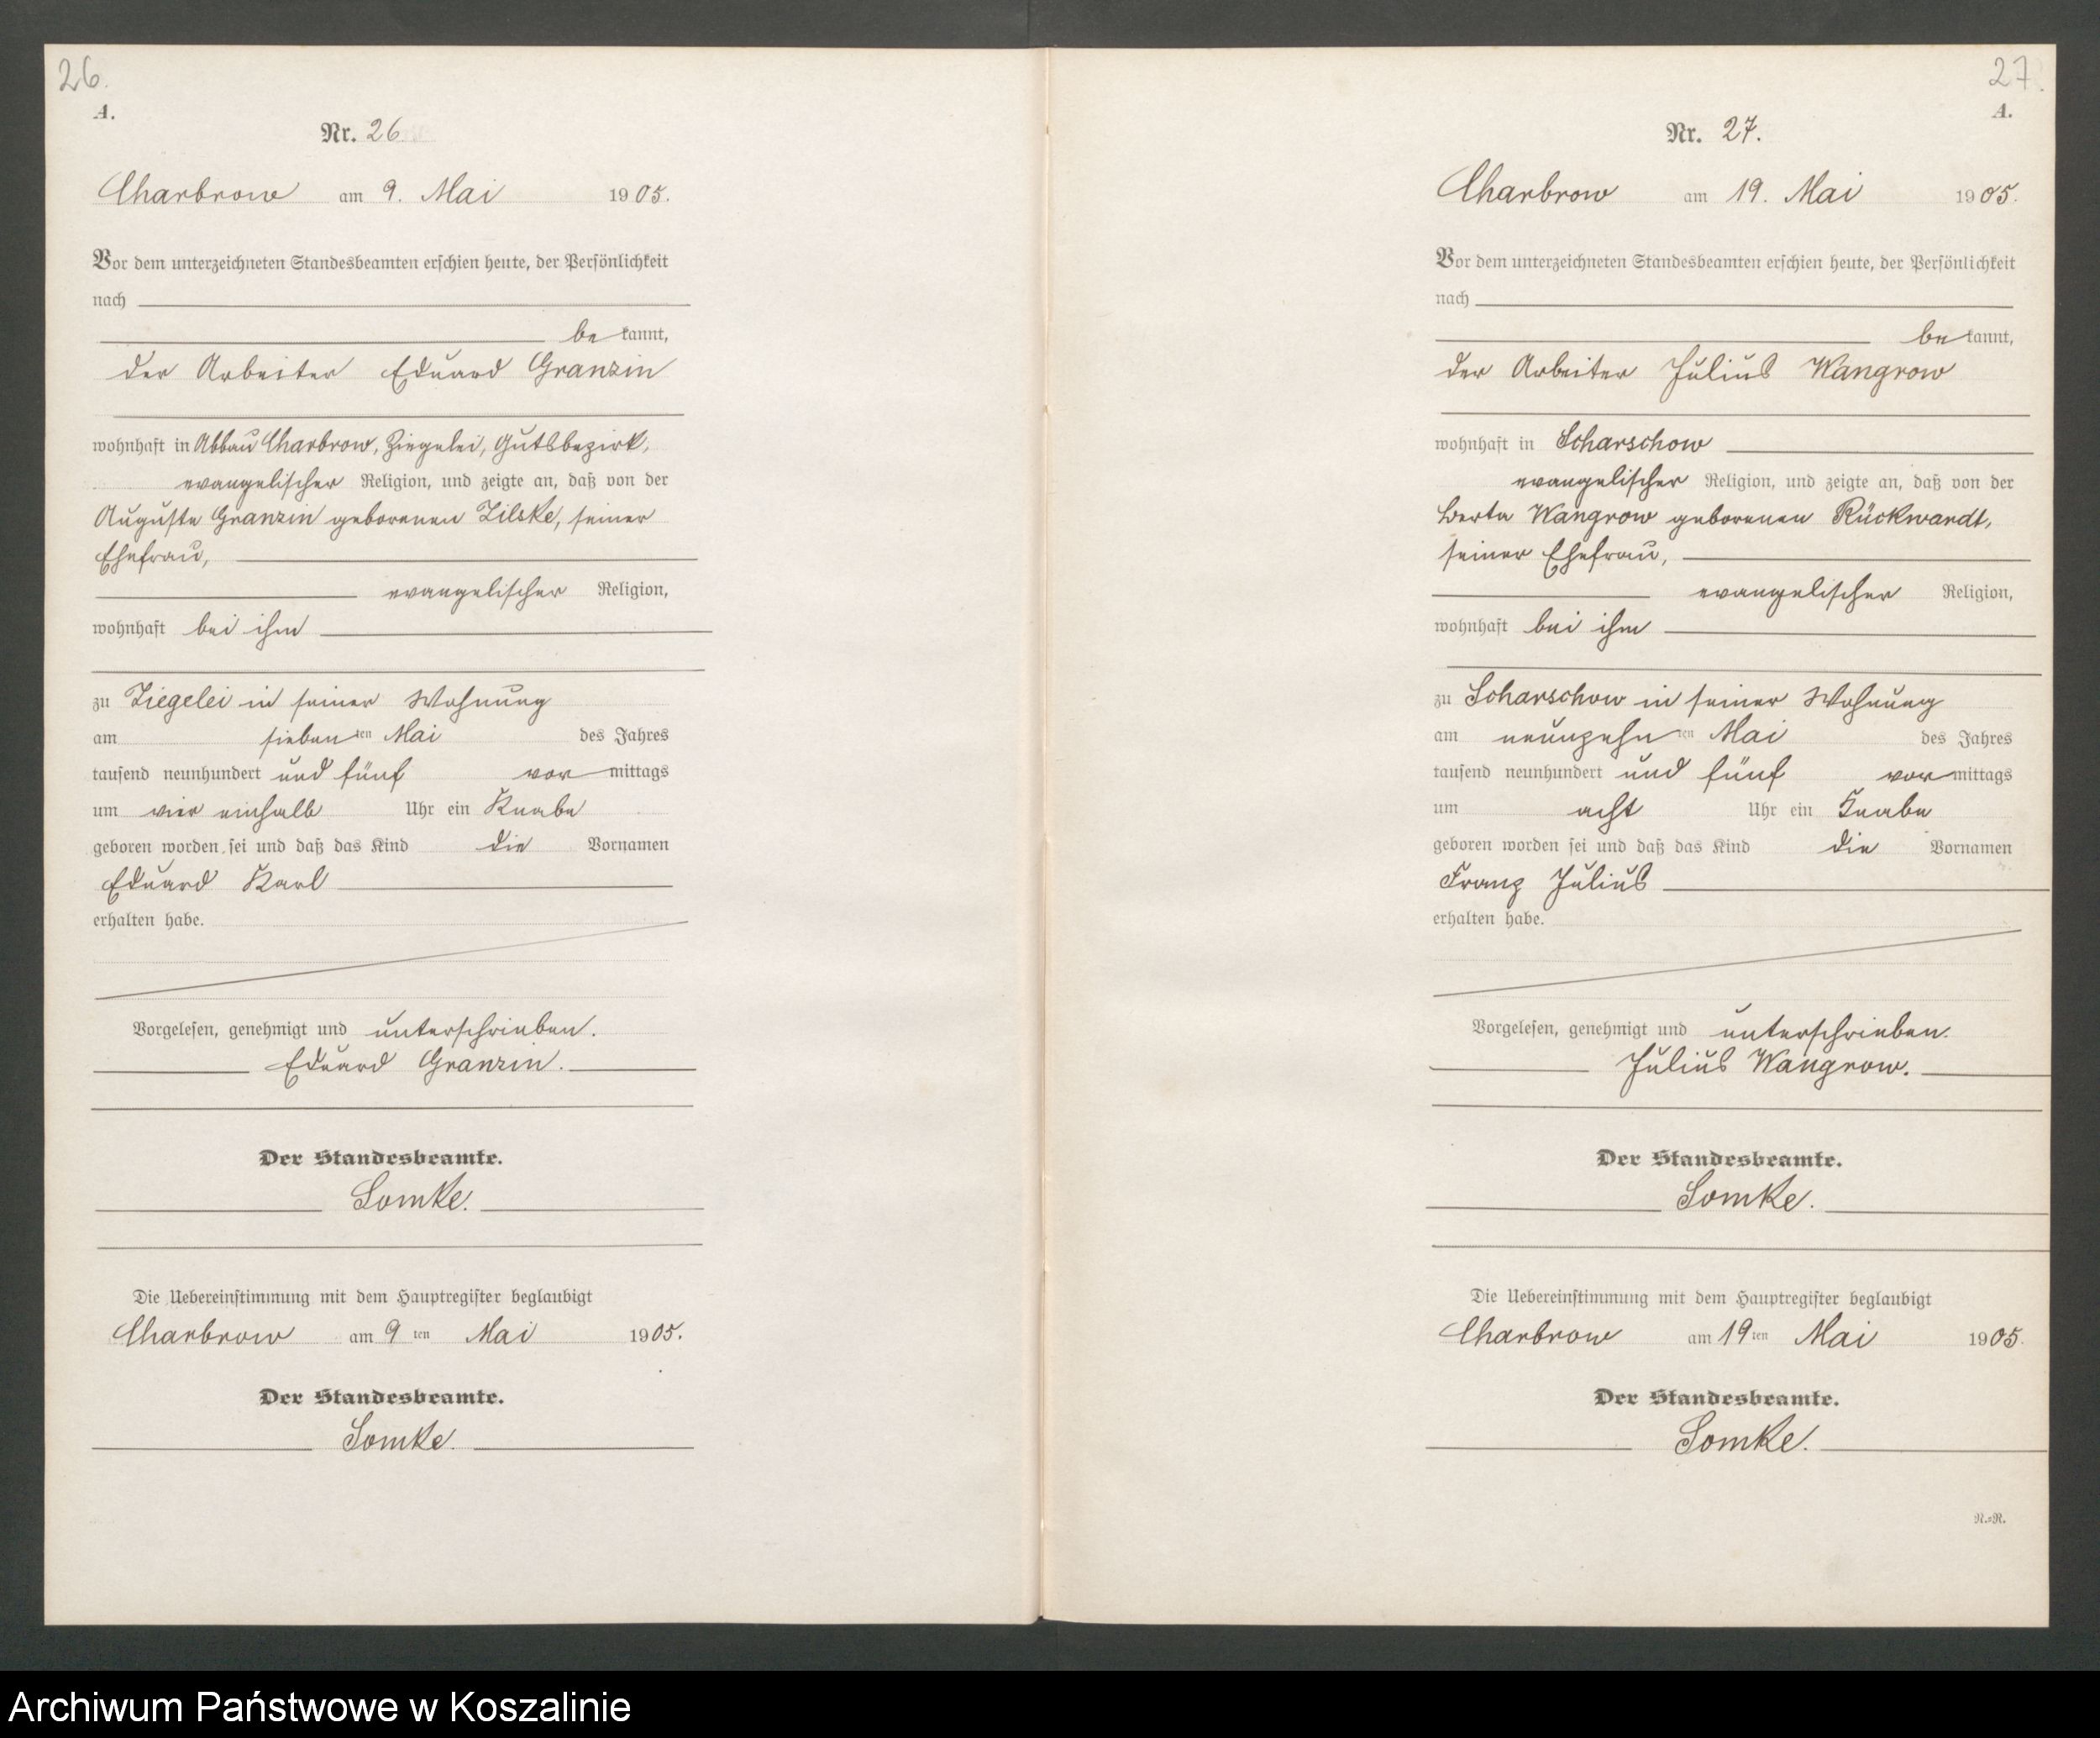 26.
A.
Nr. 26
Charbrow am 9. Mai 1905.
Vor dem unterzeichneten Standesbeamten erschien heute, der Persönlichkeit
nach
be kannt,
der Arbeiter Eduard Granzin
wohnhaft in Abbau Charbrow, Ziegelei, Gutsbezirk,
evangelischer Religion, und zeigte an, daß von der
Auguste Granzin geborenen Zilske, seiner
Ehefrau,
evangelischer Religion,
wohnhaft bei ihm
zu Ziegelei in seiner Wohnung
am sieben ten Mai des Jahres
tausend neunhundert und fünf vor mittags
um vier einhalb Uhr ein Knabe
geboren worden sei und daß das Kind die Vornamen
Eduard Karl
erhalten habe.
Vorgelesen, genehmigt und unterschrieben.
Eduard Granzin.
Der Standesbeamte.
Lomke.
Die Uebereinstimmung mit dem Hauptregister beglaubigt
Charbrow am 9 ten Mai 1905.
Der Standesbeamte.
Lomke.
27.
A.
Nr. 27.
Charbrow am 19. Mai 1905.
Vor dem unterzeichneten Standesbeamten erschien heute, der Persönlichkeit
nach
be kannt,
der Arbeiter Julius Wangrow
wohnhaft in Scharschow
evangelischer Religion, und zeigte an, daß von der
Berta Wangrow geborenen Rückwardt,
seiner Ehefrau,
evangelischer Religion,
wohnhaft bei ihm
zu Scharschow in seiner Wohnung
am neunzehn ten Mai des Jahres
tausend neunhundert und fünf vor mittags
um acht Uhr ein Knabe
geboren worden sei und daß das Kind die Vornamen
Franz Julius
erhalten habe.
Vorgelesen, genehmigt und unterschrieben.
Julius Wangrow.
Der Standesbeamte.
Lomke.
Die Uebereinstimmung mit dem Hauptregister beglaubigt
Charbrow am 19 ten Mai 1905.
Der Standesbeamte.
Lomke.
R.=R.
Archiwum Państwowe w Koszalinie